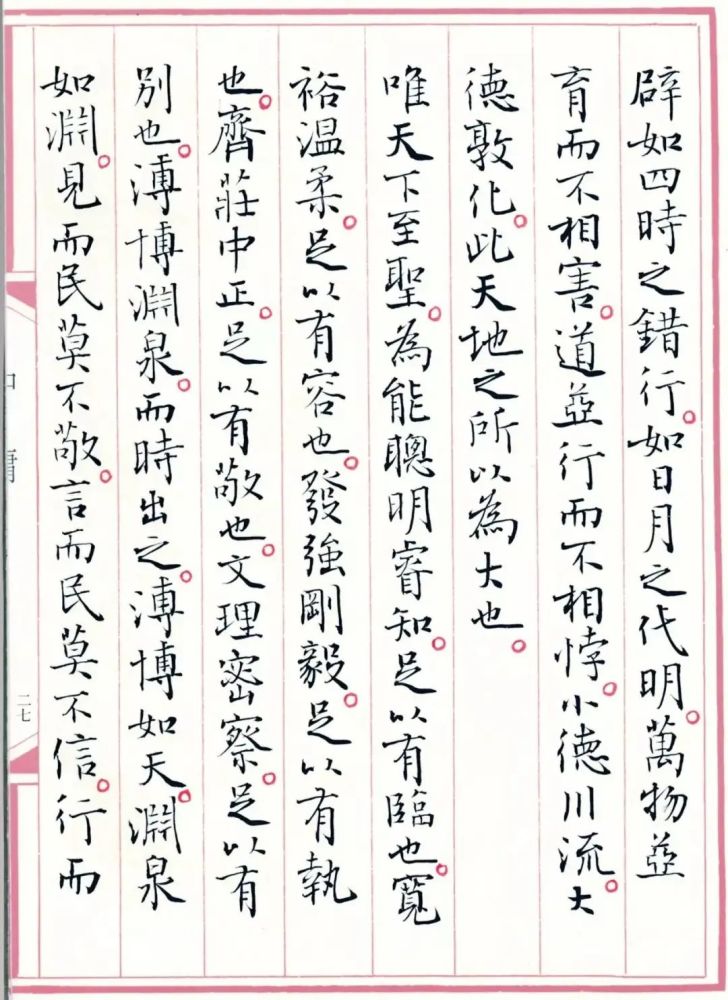 辟如四時之錯行。如日月之代明。萬物並
育而不相害。道並行而不相悖。小德川流。大
德敦化。此天地之所以為大也。
唯天下至聖。為能聰明睿知。足以有臨也。寬
裕溫柔。足以有容也。發強剛毅。足以有執
也。齊莊中正。足以有敬也。文理密察。足以有
別也。溥博淵泉。而時出之。溥博如天。淵泉
如淵。見而民莫不敬。言而民莫不信。行而
二七